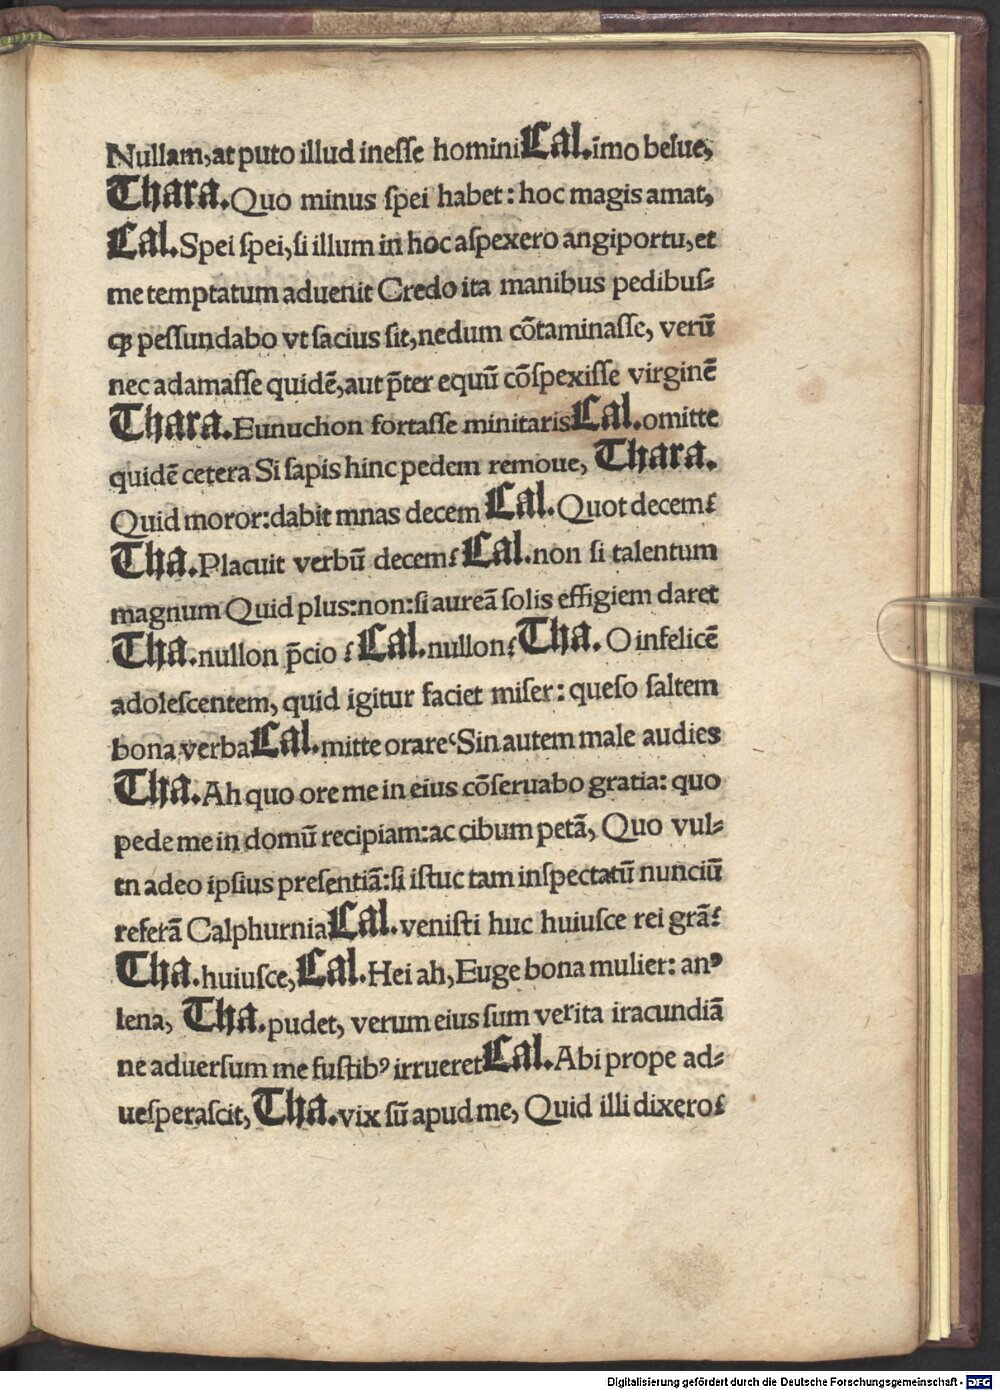 Nullam,at puto illud inesse homini Cal.īmo belue,
Thara.Quo minus spei habet: hoc magis amat,
Cal.Spei spei,si illum in hoc aspexero angiportu,et
me temptatum aduenit Credo ita manibus pedibus⸗
qꝫ pessundabo vt sacius sit,nedum cōtaminasse, verū
nec adamasse quidē,aut p̄ter equū cōspexisse virginē
Thara.Eunuchon fortasse minitaris Cal.omitte
quidē cetera Si sapis hinc pedem remoue, Thara.
Quid moror:dabit mnas decem Cal.Quot decem?
Tha.Placuit verbū decem? Cal.non si talentum
magnum Quid plus:non:si aureā solis effigiem daret
Tha.nullon p̄cio? Cal.nullon? Tha.O infelicē
adolescentem, quid igitur faciet miser: queso saltem
bona verba Cal.mitte orare Sin autem male audies
Tha.Ah quo ore me in eius cōseruabo gratia: quo
pede me in domū recipiam:ac cibum petā, Quo vul⸗
tn adeo ipsius presentiā:si istuc tam inspectatū nunciū
referā Calphurnia Cal.venisti huc huiusce rei grā?
Tha.huiusce,Cal.Hei ah,Euge bona mulier: anꝰ
lena, Tha.pudet, verum eius sum verita iracundiā
ne aduersum me fustibꝰ irrueret Cal.Abi prope ad⸗
uesperascit,Tha.vix sū apud me, Quid illi dixero?
Digitalisierung gefördert durch die Deutsche Forschungsgemeinschaft - DFG